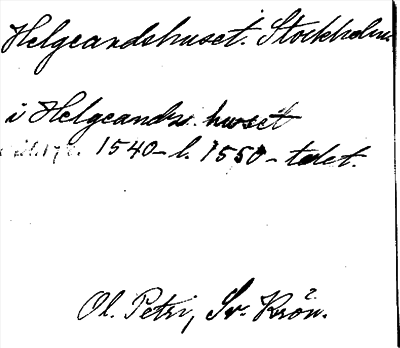 Helgeandshuset. Stockholm.
i Helgeands huset
1540- l. 1550-talet.
Ol. Petri, Sv. Krön.